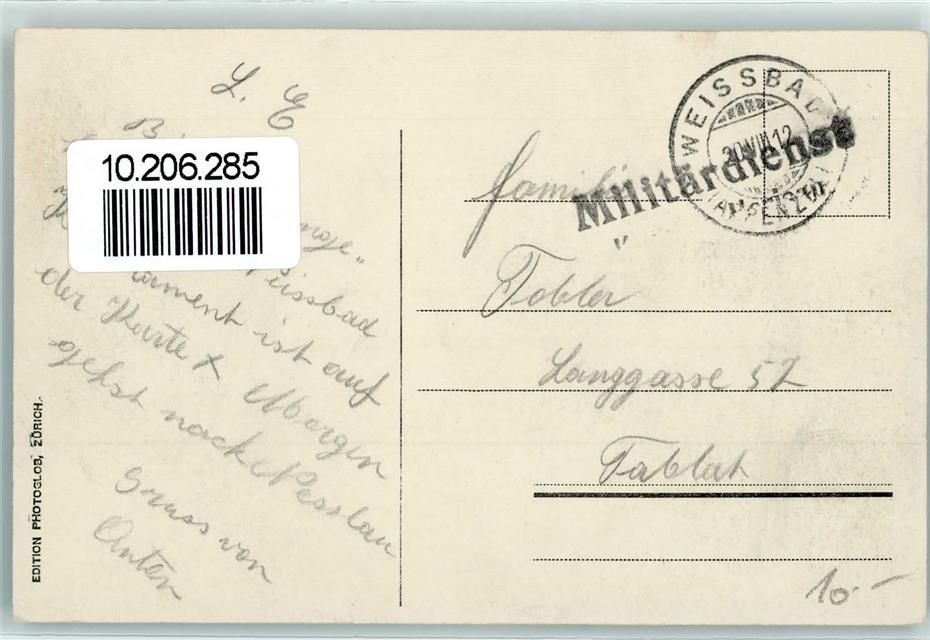 L. E
10.206.285
eissbad
ament ist auf
der Karte X Morgen
gehst nach Nesslau
Gruss von
Anton
EDITION PHOTOGLOB, ZÜRICH.
WEISSBAD
30.VIII.12
(APPENZELL)
Militärdienst
Familie
"
Tobler
Langgasse 57
Tablat
10.-